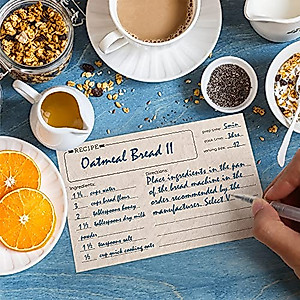 RECIPE
Oatmeal Bread II
prep time: 5min.
cook time: 3hrs.
serving size: 12
Ingredients:
1 ½ cups water
3 cups bread flour
2 tablespoons honey
2 tablespoons dry milk
powder
1 ½ teaspoons salt
½ cup quick cooking oats
Directions:
Place ingredients in the pan
of the bread machine in the
order recommended by the
manufacturer. Select V